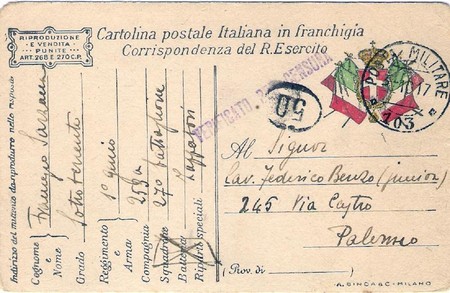 RIPRODUZIONE
E VENDITA
PUNITE
ART. 268 E 270 C.P.
Cartolina postale Italiana in franchigia
Corrispondenza del R. Esercito
VERIFICATO PER CENSURA
50
POSTA MILITARE
17
103
Indirizzo del mittente da riprodurre nelle risposte
Cognome e Nome
Grado Sotto Tenente
Reggimento e Arma 1° genio
Compagnia
Squadrone 27° Battaglione
Batteria
Riparto speciali Zappatori
Al Signor
Cav. Federico Benzo (junior)
245 Via Castro
Palermo
(Prov. di )
A. GINOCCHI - MILANO